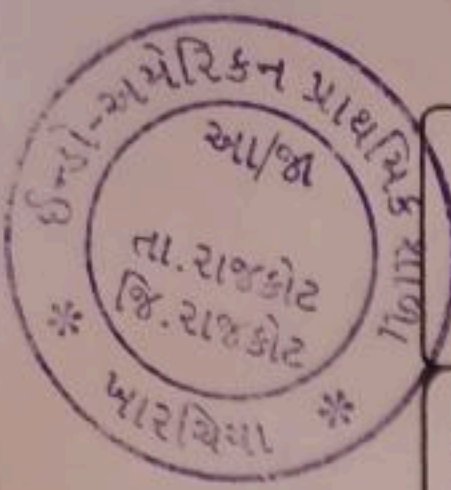 ઈન્ડો-અમેરિકન પ્રાથમિક શાળા
આ/જા
તા. રાજકોટ
જિ. રાજકોટ
* ખારચિયા *